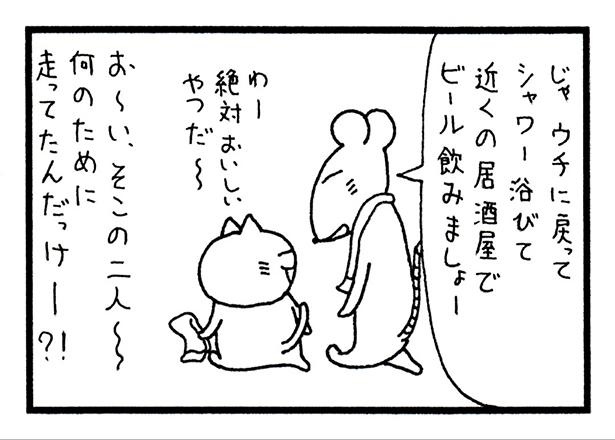 じゃ ウチに戻って
シャワー浴びて
近くの居酒屋で
ビール飲みましょー
わー
絶対おいしい
やつだ〜
お〜い、そこの二人〜〜
何のために
走ってたんだっけー?!